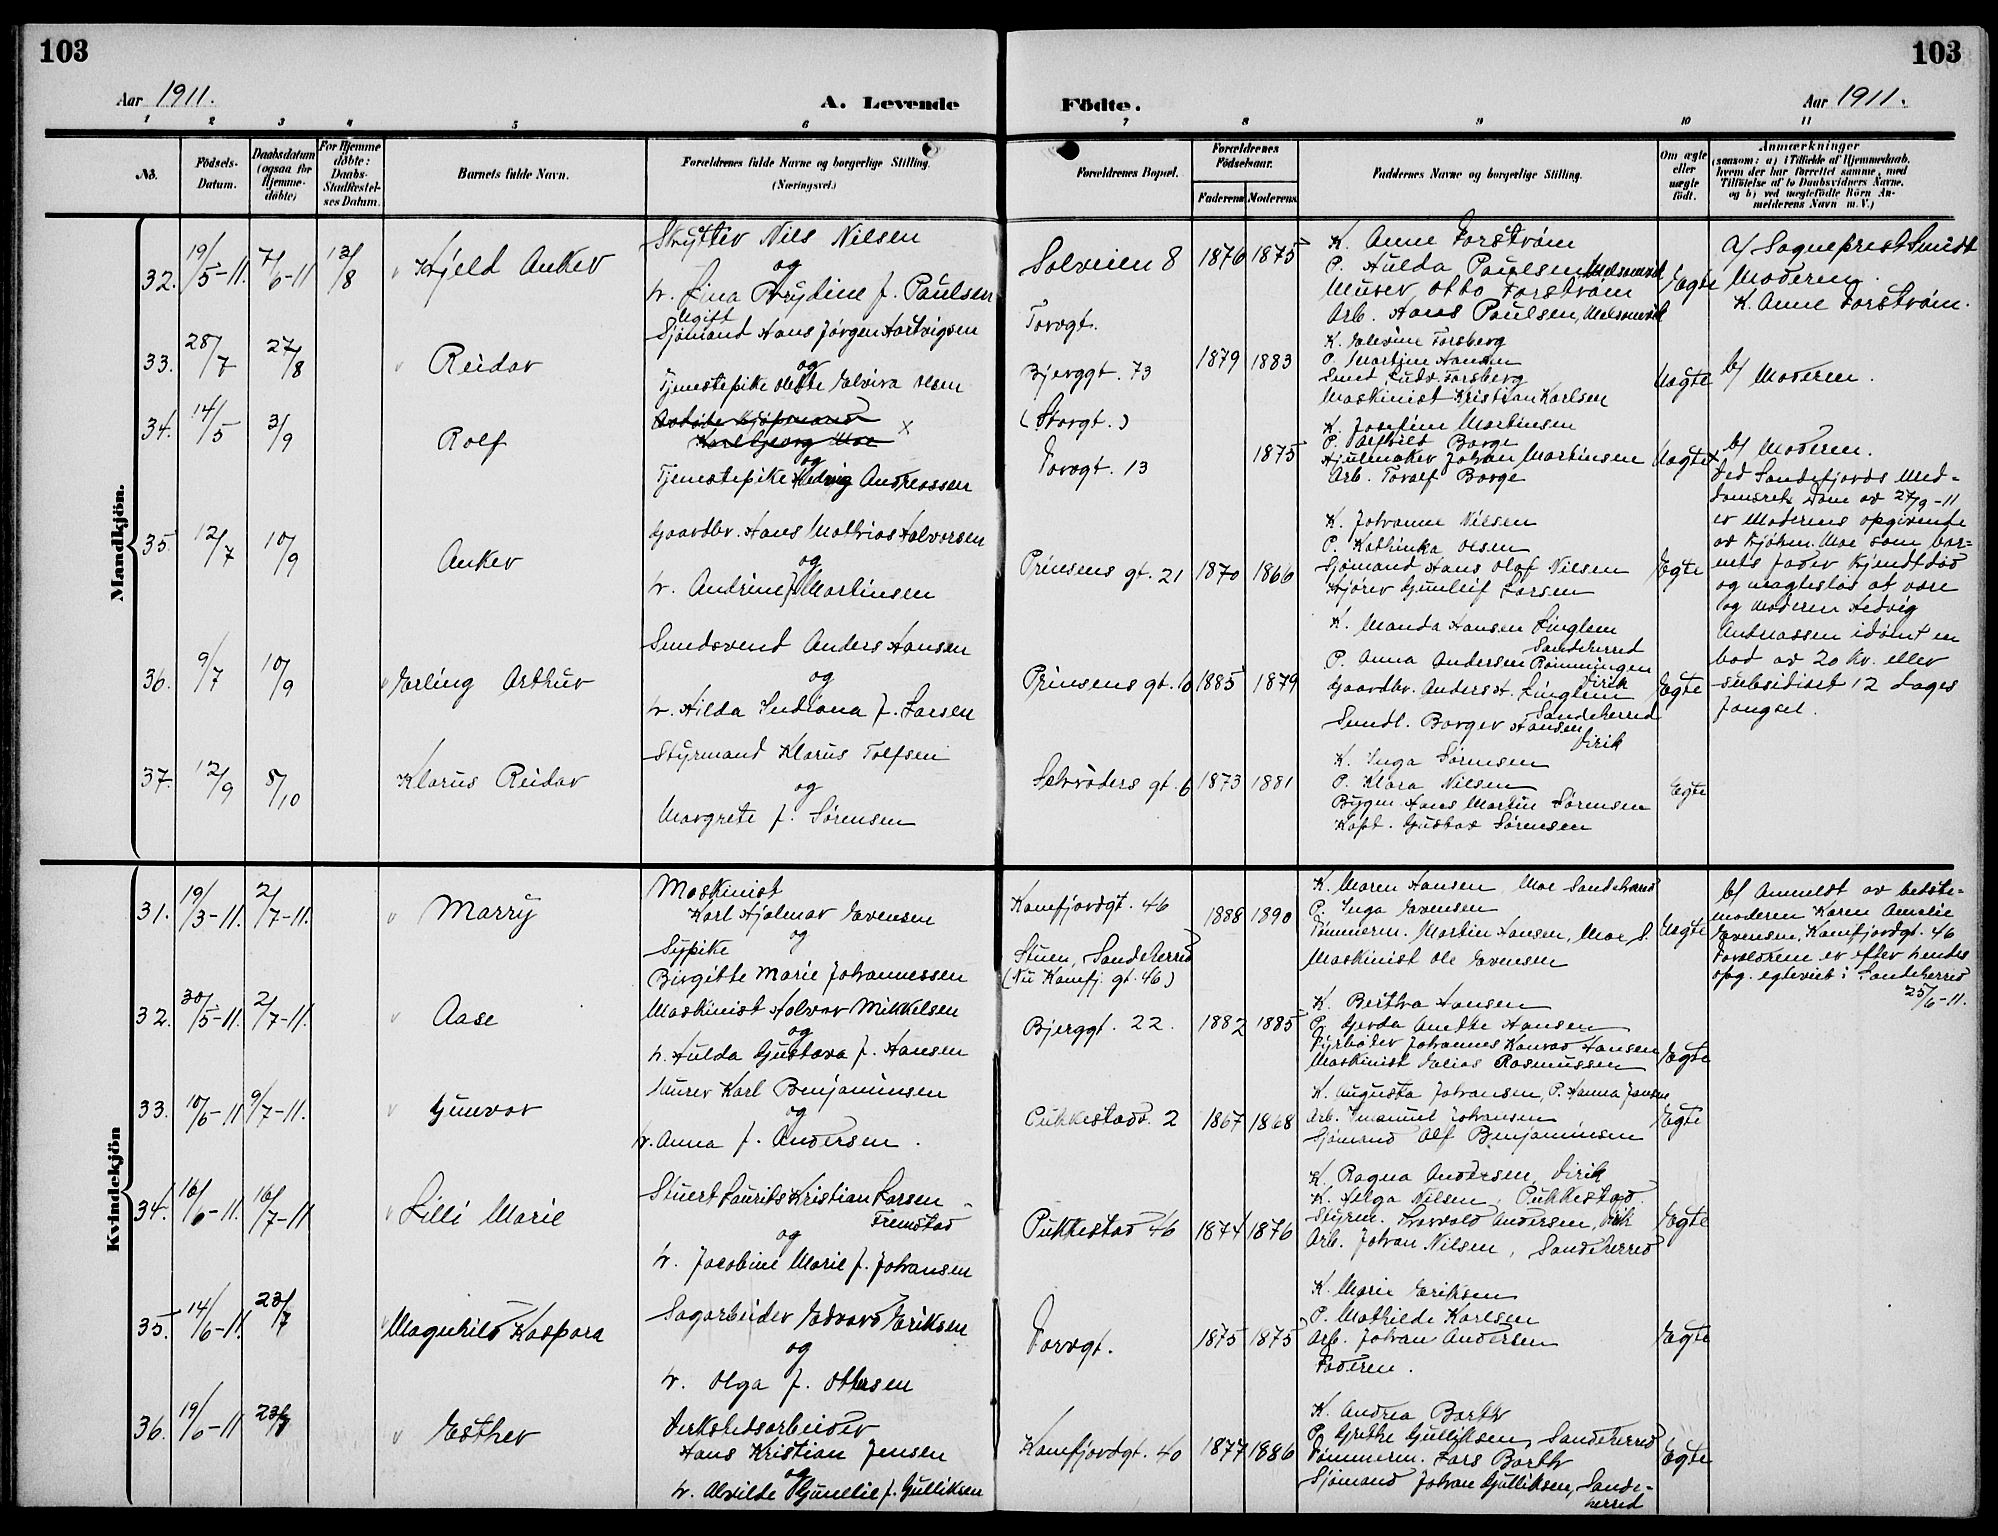 103
103
Aar 1911.
A. Levende
Födte.
Aar 1911.
1 2 3 4 5 6 7 8 9 10 11
No.
Födsels-Datum.
Daabsdatum (ogsaa for Hjemme-döbte)
For Hjemme döbte: Daabs-Stadfæstel-ses Datum.
Barnets fulde Navn.
Forældrenes fulde Navne og borgerlige Stilling. (Næringsvei.)
Forældrenes Bopæl.
Forældrenes Födselsaar.
Faderens Moderens
Faddernes Navne og borgerlige Stilling.
Om ægte eller uægte födt.
Anmærkninger
(saasom: a) i Tilfælde af Hjemmedaab, hvem der har forrettet samme, med Tilföielse af to Daabsvidners Navne, og b) ved uægtefödte Börn An-melderens Navn m. V.)
Mandkjön.
32. 19/5-11. 7/6-11 13/8
Kjeld Anker
Skytter Nils Nilsen
og
h. Lina Brydine f. Paulsen
Solveien 8
1876 1875
K. Anne Forstrøm
P. Hulda Paulsen, Melsomvik
Murer Otto Forstrøm
Arb. Hans Paulsen, Melsomvik
Egte
a/ Sogneprest Smidt
Moderen.
K. Anne Forstrøm.
33. 28/7 27/8
Reidar
Ugift
Sjømand Hans Jørgen Hartvigsen
og
Tjenestepike Olette Elvira Olsen
Torvgt.
Bjerggt. 73
1879 1883
K. Elevine Forsberg
P. Martine Hansen
Smed Ludv. Forsberg
Maskinist Kristian Karlsen
Uegte
b/ Moderen.
34. 14/5 3/9
Rolf
Avdøde Kjøpmand
Karl Georg Moe x
og
Tjenestepike Hedvig Andreassen
(Storgt.)
Torvgt. 13
1875
K. Josefine Martinsen
P. Borge
Hjulmaker Johan Martinsen
Arb. Toralf Borge
Uegte
b/ Moderen.
Ved Sandefjords Med-
domsrets Dom av 27/9-11
er Moderens opgivende
av Kjøbm. Moe som bar-
nets fader kjendt død
og magtesløs at være
og moderen Hedvig
Andreassen idømt en
bod av 20 Kr. eller
subsidiært 12 dages
fængsel.
35. 12/7 10/9
Anker
Gaardbr. Hans Mathias Halvorsen
og
h. Andrine f. Martinsen
Prinsens gt. 21
1870 1866
K. Johanne Nilsen
P. Kathinka Olsen
Sjømand Hans Olaf Nilsen
Kjører Gunleif Larsen
Egte
36. 9/7 10/9
Erling Arthur
Smedsvend Anders Hansen
og
h. Hilda Indiana f. Larsen
Prinsens gt. 10
1885 1879
K. Manda Hansen Linglem
Sandeherred
P. Anna Andersen Rømmingen
Virik
Gaardbr. Anders H. Linglem
Sandeherred
Smedl. Borger Hansen
Virik
Egte
37. 12/9 8/10
Klarus Reidar
Styrmand Klarus Tolfsen
og
Margrete f. Sørensen
Schrøders gt. 6
1873 1881
K. Inga Sørensen
P. Klara Nilsen
Bygm. Hans Martin Sørensen
Kapt. Gustav Sørensen
Egte
Kvindekjön
31. 19/3-11. 2/7-11.
Marry
Maskinist
Karl Hjalmar Evensen
og
Sypike
Birgitte Marie Johannessen
Kamfjordgt. 46
Stuen, Sandeherred
(Nu Kamfj. gt. 46)
1888 1890
K. Maren Hansen, Moe Sandeherred
P. Inga Evensen
Tømmerm. Martin Hansen, Moe S.
Maskinist Ole Evensen
Uegte
b/ Anmeldt av bedste-
moderen Karen Amalie
Evensen, Kamfjordgt. 46
Forældrene er efter hendes
opg. egteviet i Sandeherred
25/6-11.
32. 30/5-11. 2/7-11.
Aase
Maskinist Halvor Mikkelsen
og
h. Hulda Gustava f. Hansen
Bjerggt. 22.
1882 1885
K. Bertha Hansen
P. Gerda Anette Hansen
Fyrbøder Johannes Konrad Hansen
Maskinist Elias Rasmussen
Egte
33. 10/6-11 9/7-11.
Gunvor
Murer Karl Benjaminsen
og
h. Anna f. Andersen.
Pukkestadv. 2
1867 1868
K. Augusta Johansen, P. Hanna Jansen
Arb. Emanuel Johansen
Sjømand Alf Benjaminsen
Egte
34. 16/6-11. 16/7-11
Lilli Marie
Stuert Laurits Kristian Larsen
Fremstad
og
h. Jacobine Marie f. Johansen
Pukkestad 46
1874 1876
K. Ragna Andersen, Virik
K. Helga Nilsen, Pukkestad
Styrm. Andersen, Virik
Arb. Johan Nilsen, Sandeherred
Egte
35. 14/6-11. 23/7
Magnhild Kaspara
Sagarbeider Edvard Eriksen
og
h. Olga f. Ottersen
Torvgt.
1875 1875
K. Marie Eriksen
P. Mathilde Karlsen
Arb. Johan Andersen
Faderen.
Egte
36. 19/6-11 23/7
Esther
Verkstedsarbeider
Hans Kristian Jensen
og
h. Alvilde Gunellie f. Gulliksen
Kamfjordgt. 40
1877 1886
K. Andrea Barth
P. Grethe Gulliksen, Sandeherred
Tømmerm. Lars Barth
Sjømand Johan Gulliksen, Sande-
herred
Egte